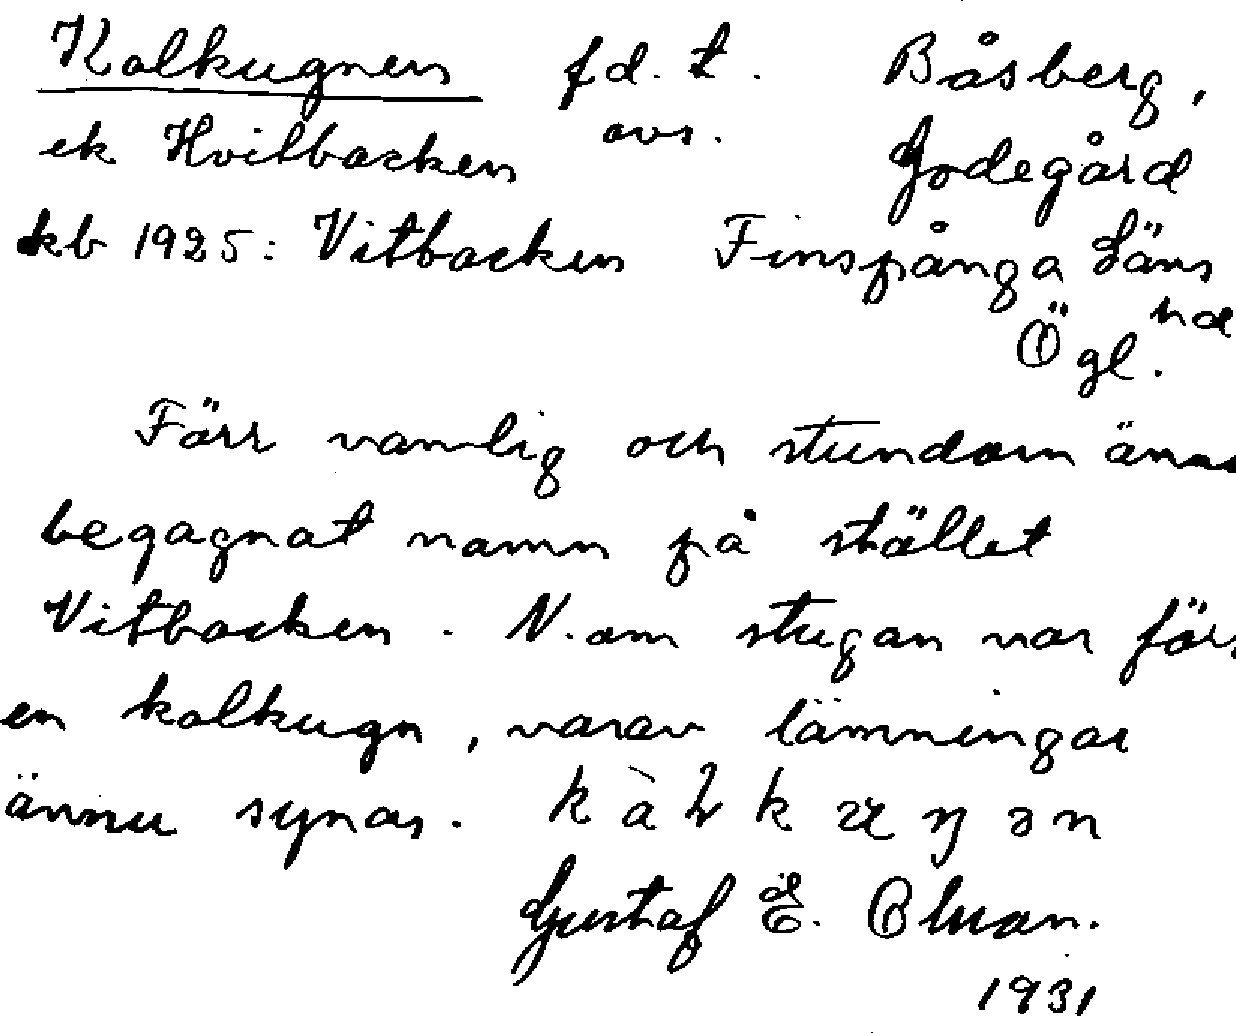 Kalkugnen fd. t. Båsberg,
ek Hvilbacken avs. Godegård
kb 1925: Vitbacken Finspånga Läns
hd
Ögl.
Förr vanlig och stundom ännu
begagnat namn på stället
Vitbacken. N. om stugan var förr
en kalkugn, varav lämningar
ännu synas.
Gustaf E. Olman.
1931